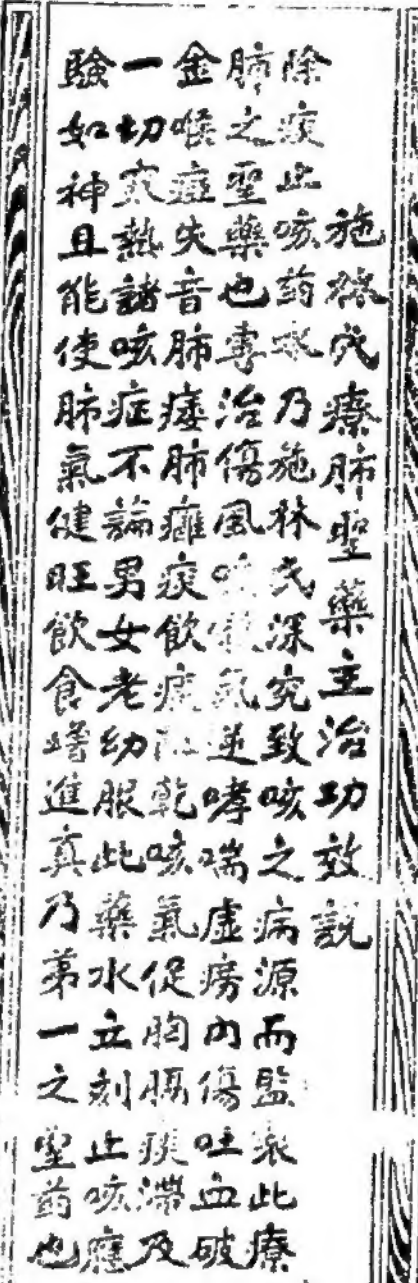 施林氏療肺聖藥主治功效說
除痰止咳葯水乃施林氏深究致咳之病源而監製此療
肺之聖藥也專治傷風咳嗽氣逆哮喘虛癆內傷吐血破
金喉症失音肺痿肺癰痰飲乾咳氣促胸膈痰滯及
一切寒熱諸咳症不論男女老幼服此藥水立刻止咳應
驗如神且能使肺氣健旺飲食增進真乃第一之聖葯也